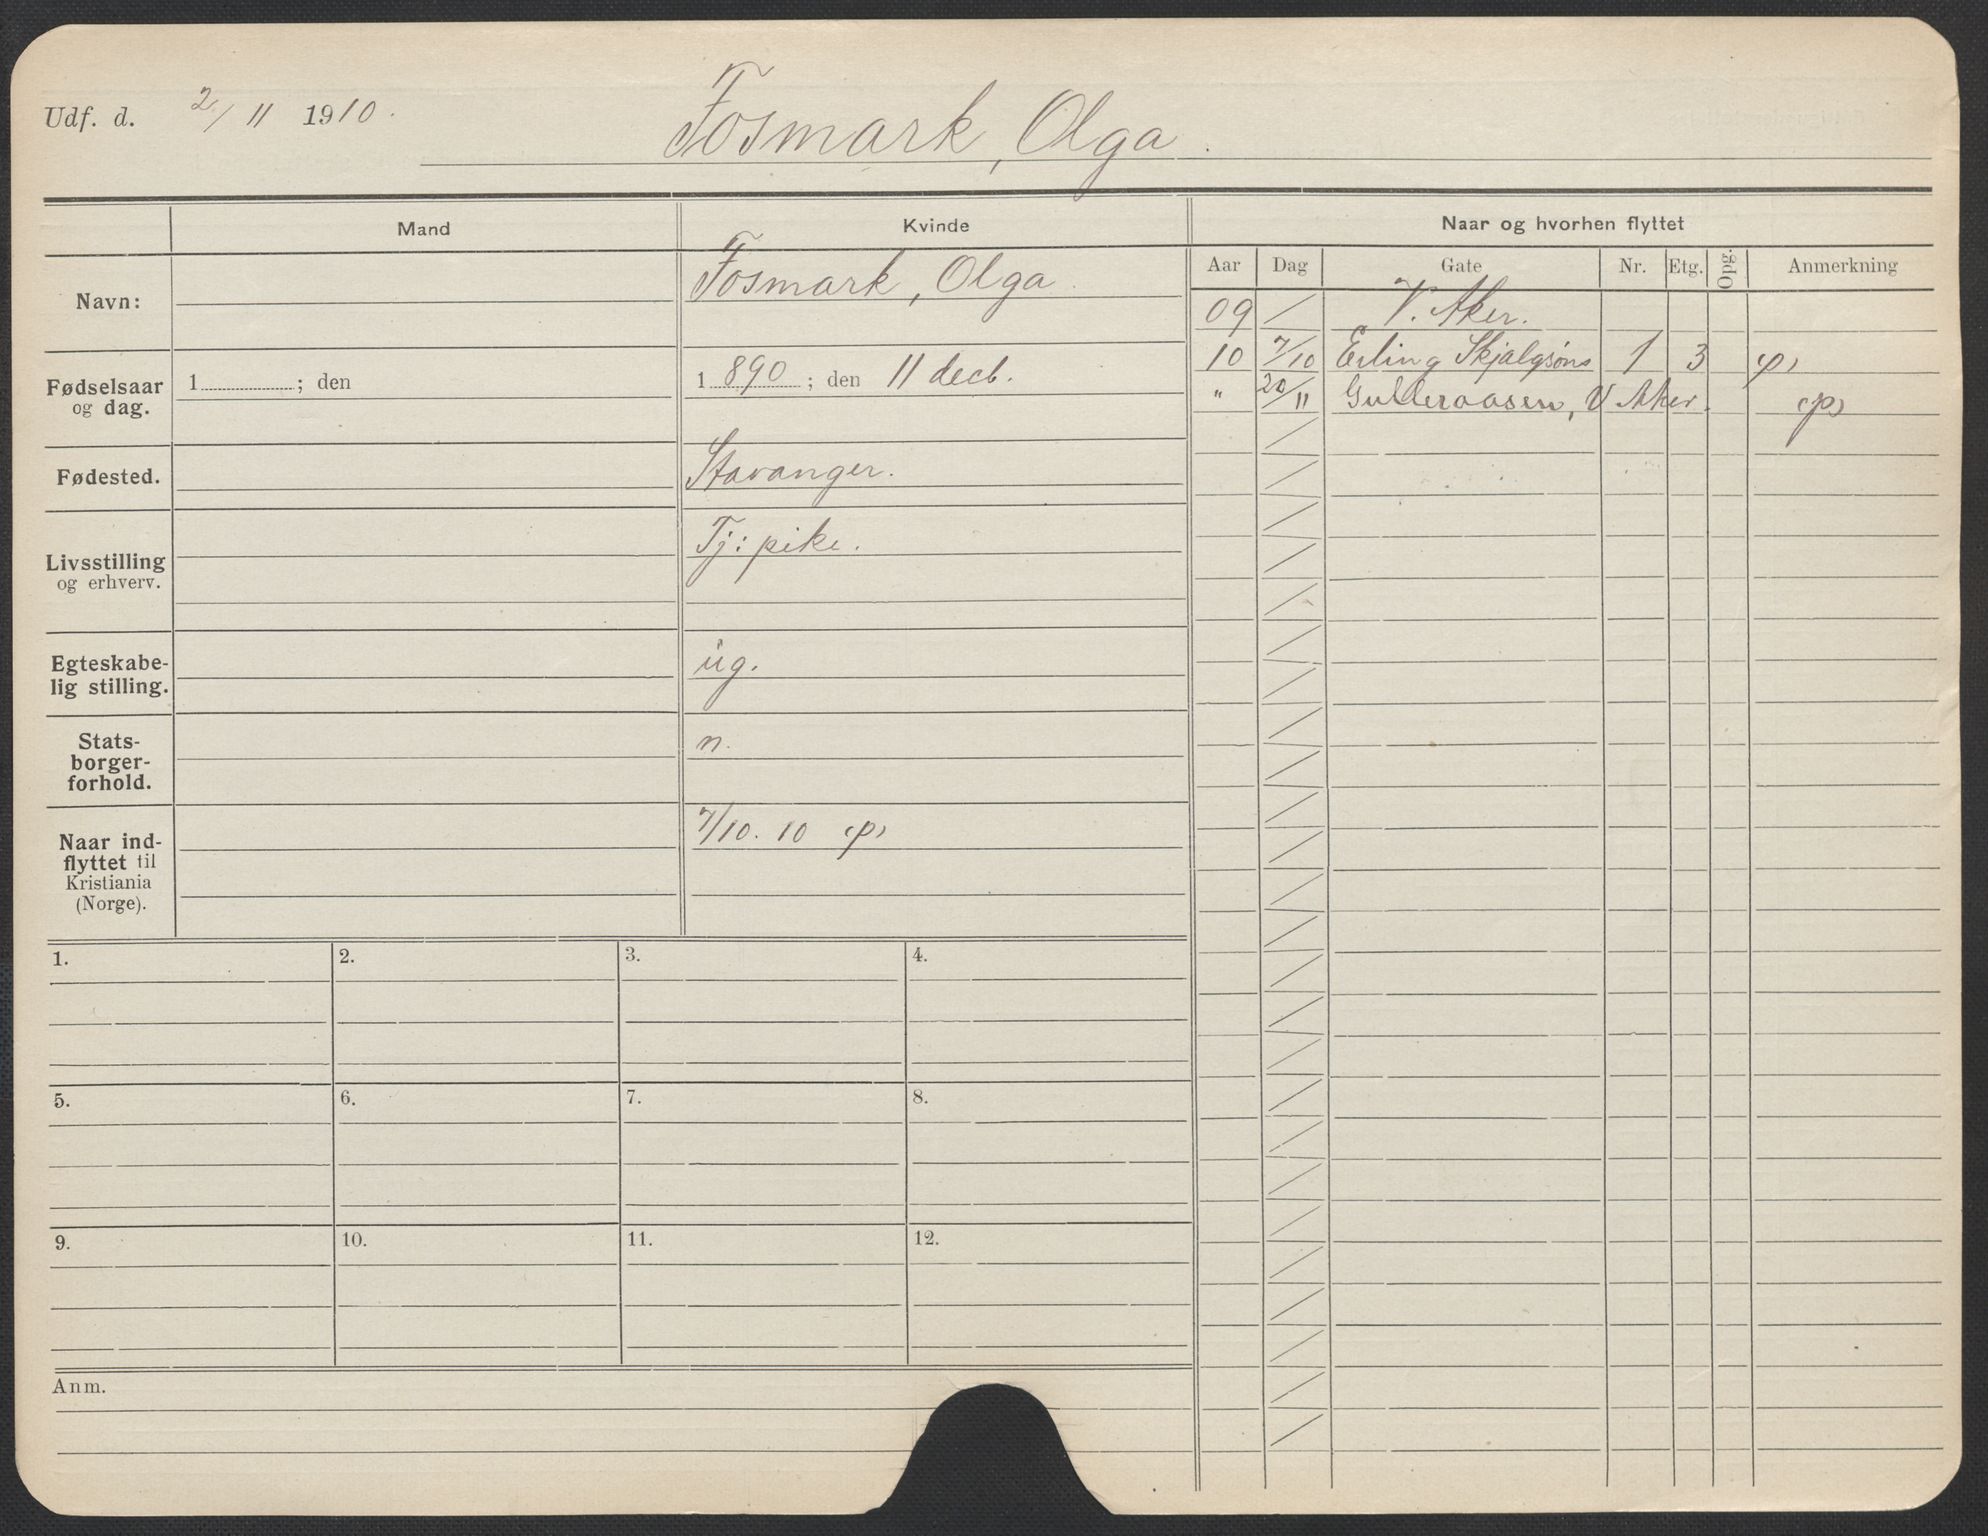 Udf. d. 2/11 1910.
Fosmark, Olga.
Mand
Kvinde
Naar og hvorhen flyttet
Aar Dag Gate Nr. Etg. Opg. Anmerkning
Navn:
Fosmark, Olga.
Fødselsaar
og dag.
1 ; den
1 890 ; den 11 decb.
Fødested.
Stavanger.
Livsstilling
og erhverv.
Tj: pike.
Egteskabe-
lig stilling.
ug.
Stats-
borger-
forhold.
n.
Naar ind-
flyttet til
Kristiania
(Norge).
7/10. 10 (p)
09 / V. Aker.
10 7/10 Erling Skjalgsøns 1 3 (p)
" 20/11 Gulleraasen, V Aker. (p)
1. 2. 3. 4.
5. 6. 7. 8.
9. 10. 11. 12.
Anm.